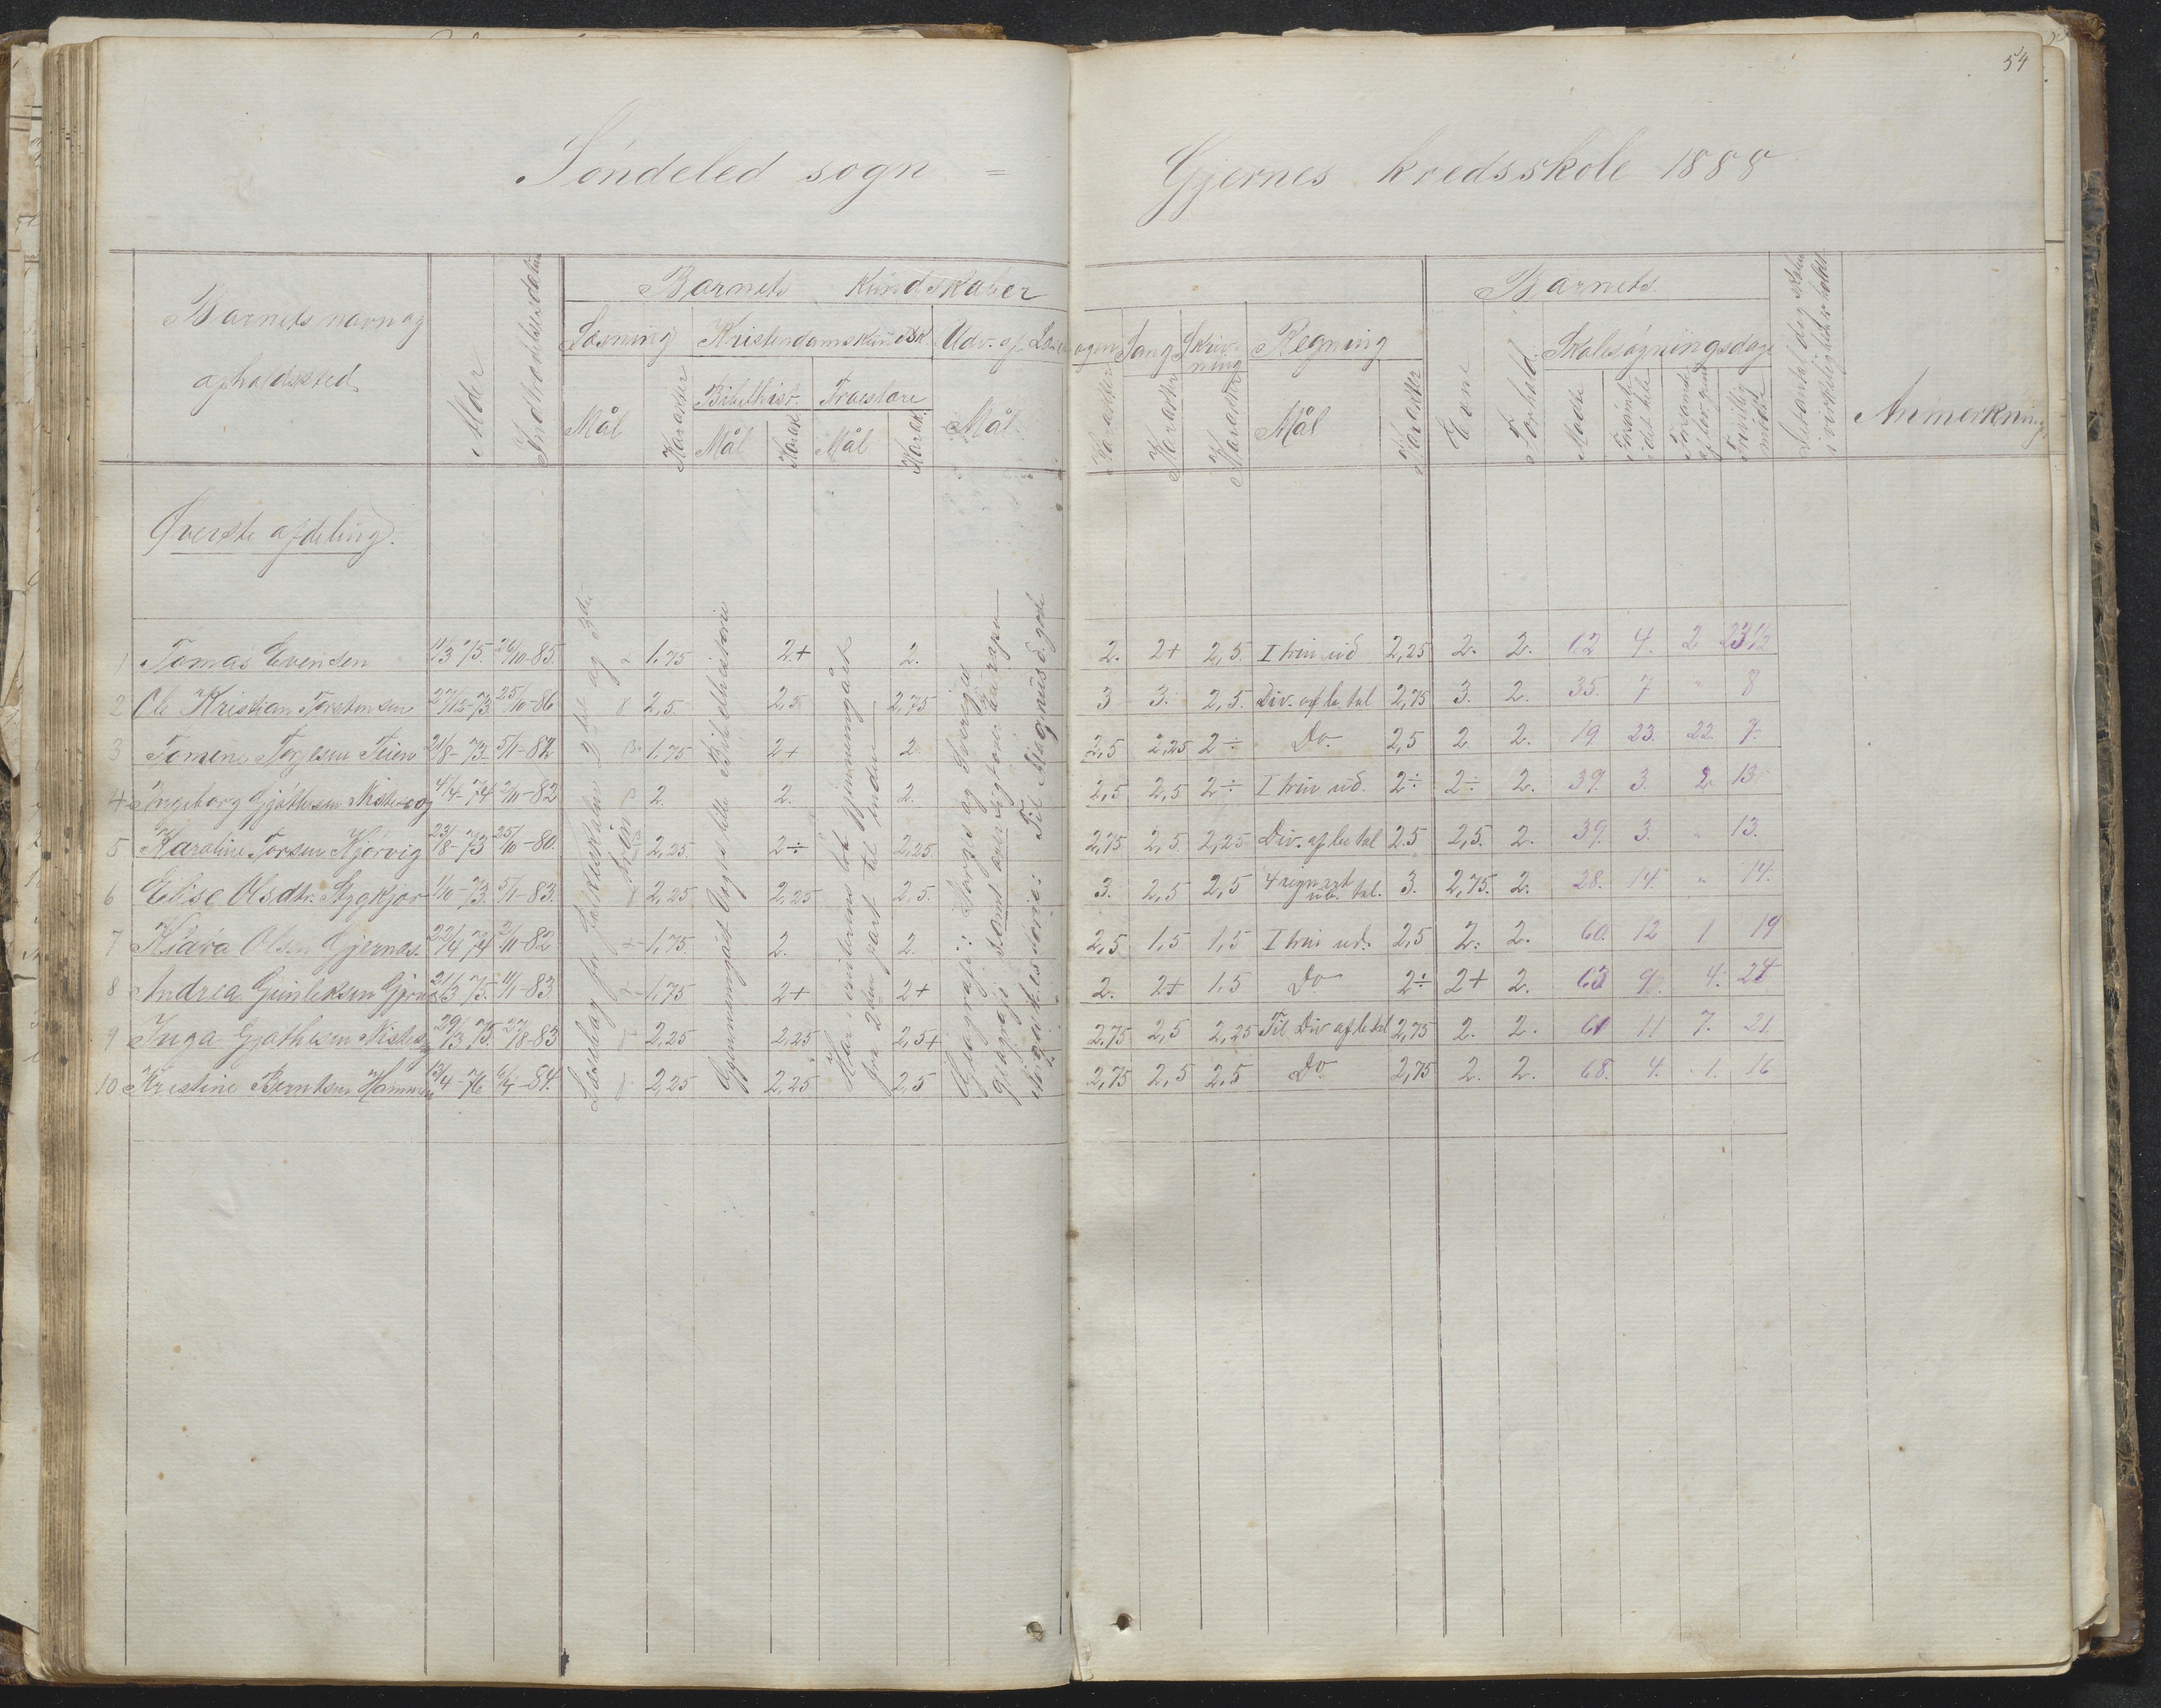 54
Söndeled sogn = Gjernes kredsskole 1888
Barnets navn og opholdssted
Alder
Indtrædelsesdatum
Barnets Kundskaber
Læsning Kristendomskundsk. Udv. af Læsebogen Sang Skrivning Regning
Mål Karakter Bibelhist. Troeslære Mål Karakter Karakter Karakter Mål Karakter
Mål Karakt. Mål Karakt.
Barnets
Evne Forhold Skolesøgningsdage
Mødte Forsømte i det hele Forsømte af lov. grund Frivillig mødte
Det antal dage skolen i virkeligheden holdt
Anmerkning
Øverste afdeling.
Læsebog for folkeskolen 2det og 3die trin
Gjennemgået Vogts lille Bibelhistorie
Har, imedens tok gjennemgået fra 2den part til enden
Geografi: Norges og Sveriges geografi samt oversigt over Europa
Til Magnus d. gode
1 Tomas Evensen 11/3 75. 26/10-85. 1,75 2+ 2. 2. 2+ 2,5. I trin ud 2,25 2. 2. 62 4. 2 23 1/2
2 Ole Kristian Torstensen 27/12-73 25/10-86 2,5. 2,5 2,75 3 3. 2,5. Div. af be. tal 2,75 3. 2. 35. 7 " 8
3 Tomine Torjesen Teien 21/8-73. 5/1-82 1,75 2+ 2. 2,5 2,25 2÷ Do. 2,5 2 2. 19 23. 22. 7.
4 Ingeborg Gjathesen 4/4-74 2/10-82 2. 2. 2. 2,5 2,5 2÷ I trin ud. 2÷ 2÷ 2. 39. 3. 2 13.
5 Karoline Torsen Kjørvig 23/8-73 25/10-80. 2,25 2÷ 2,25 2,75 2,5 2,25 Div. af be tal 2.5 2,5. 2. 39. 3. " 13.
6 Elise Olsdtr. 1/10-73. 5/1-83. 2,25 2,25 2,5. 3. 2,5 2,5 4 regn.art ub. tal. 3. 2,75. 2. 28. 14. " 14.
7 Klara Olsen Gjernæs. 22/4 74 2/10-82 1,75. 2. 2. 2,5 1,5 1,5 I trin ud. 2,5 2. 2. 60. 12 1 19
8 Andrea Gunleksen 21/3 75. 11/1-83 1,75 2+ 2+ 2. 2+ 1,5 Do 2÷ 2+ 2. 63 9. 4. 24
9 Inga Gjathesen 29/3 75. 27/8-83 2,25 2,25 2,5+ 2,75 2,5 2,25 Til Div af be tal 2,75 2. 2. 61 11 7. 21.
10 Kristine Berntsen Hammer 13/4-76 6/4-84. 2,25 2,25 2,5 2,75 2,5 2,5 Do. 2,75 2. 2. 68. 4. 1. 16